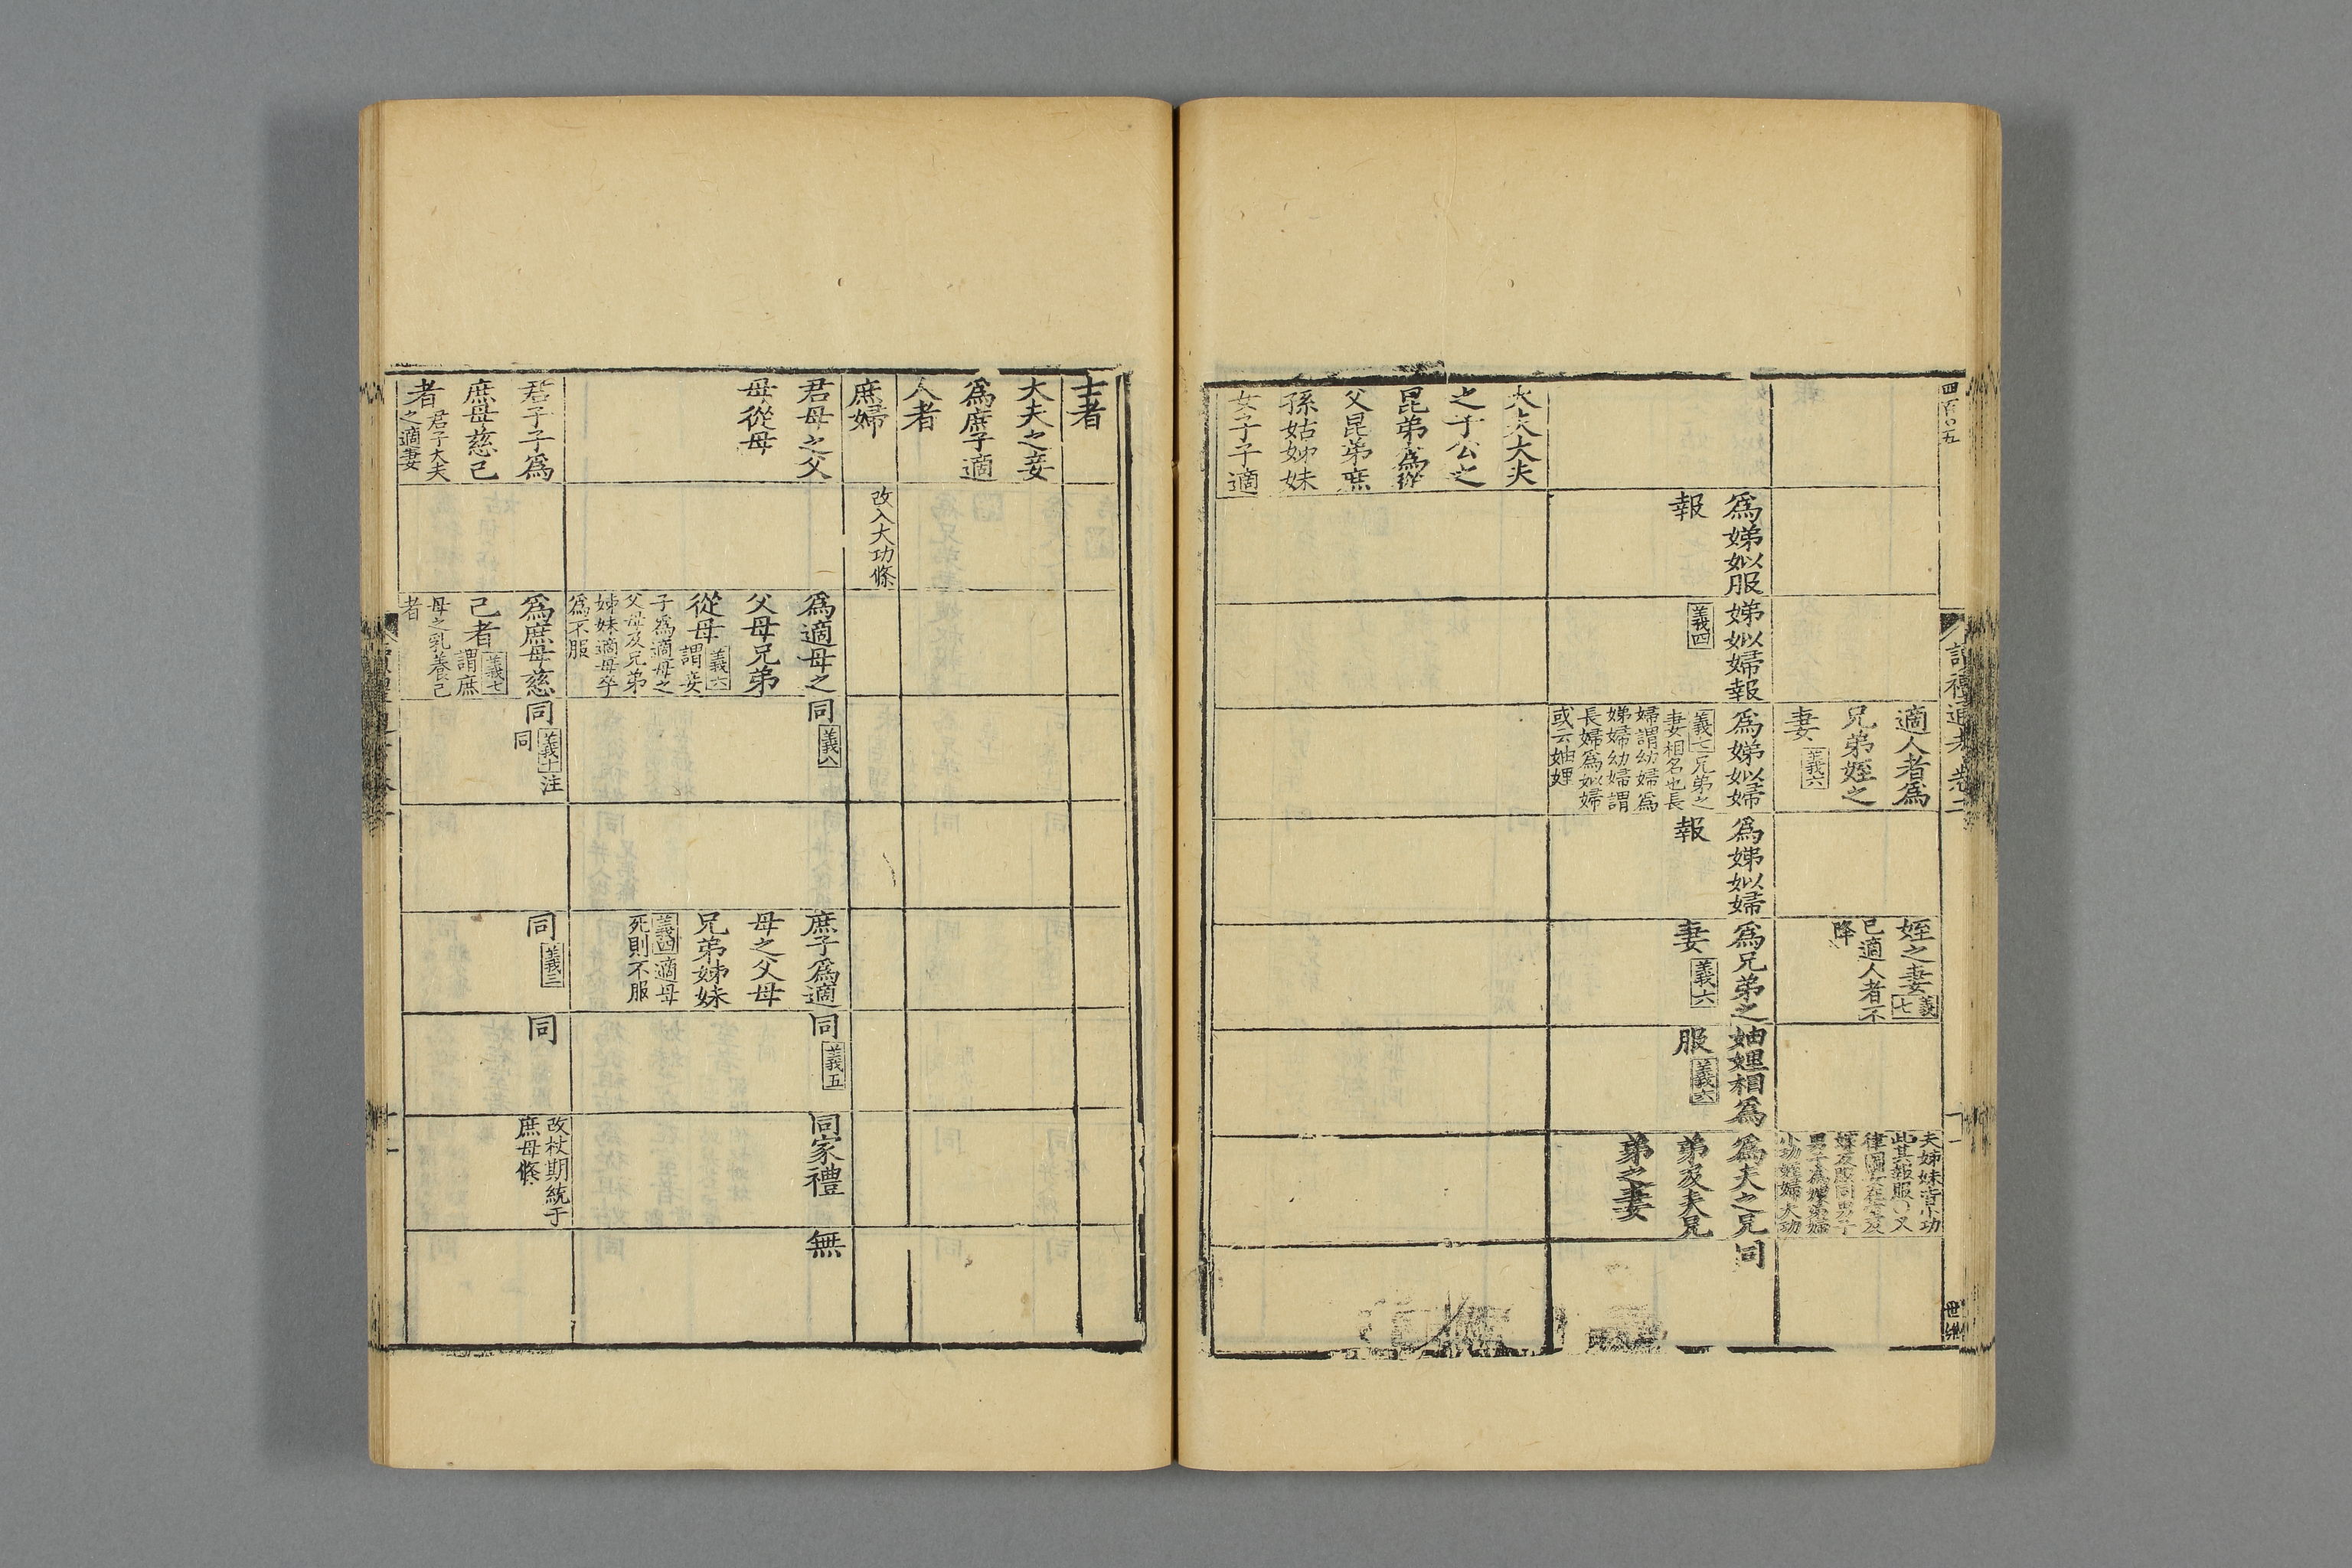 四百五
適人者爲
兄弟姪之
妻義六
姪之妻義七
已適人者不
降
夫姊妹皆小功
爲娣姒服
報
娣姒婦報
義四
爲娣姒婦
義七兄弟之
妻相名也長
婦謂幼婦爲
娣婦幼婦謂
長婦爲姒婦
或云妯娌
爲娣姒婦
報
爲兄弟之
妻義六
妯娌相爲
服義六
爲夫之兄
弟及夫兄
弟之妻
同
大夫大夫
之子公之
昆弟爲從
父昆弟庶
孫姑姊妹
女子子適
士者
大夫之妾
爲庶子適
人者
庶婦
改入大功條
君母之父
母從母
爲適母之
父母兄弟
從母義六謂妾
子爲適母之
父母及兄弟
姊妹適母卒
爲不服
同義八
庶子爲適
母之父母
兄弟姊妹
義四適母
死則不服
同義五
同家禮
無
君子子爲
庶母慈己
者君子大夫
之適妻
爲庶母慈
己者義七謂庶
母之乳養己
者
同義十注
同
同義三
同
改杖期統于
庶母條